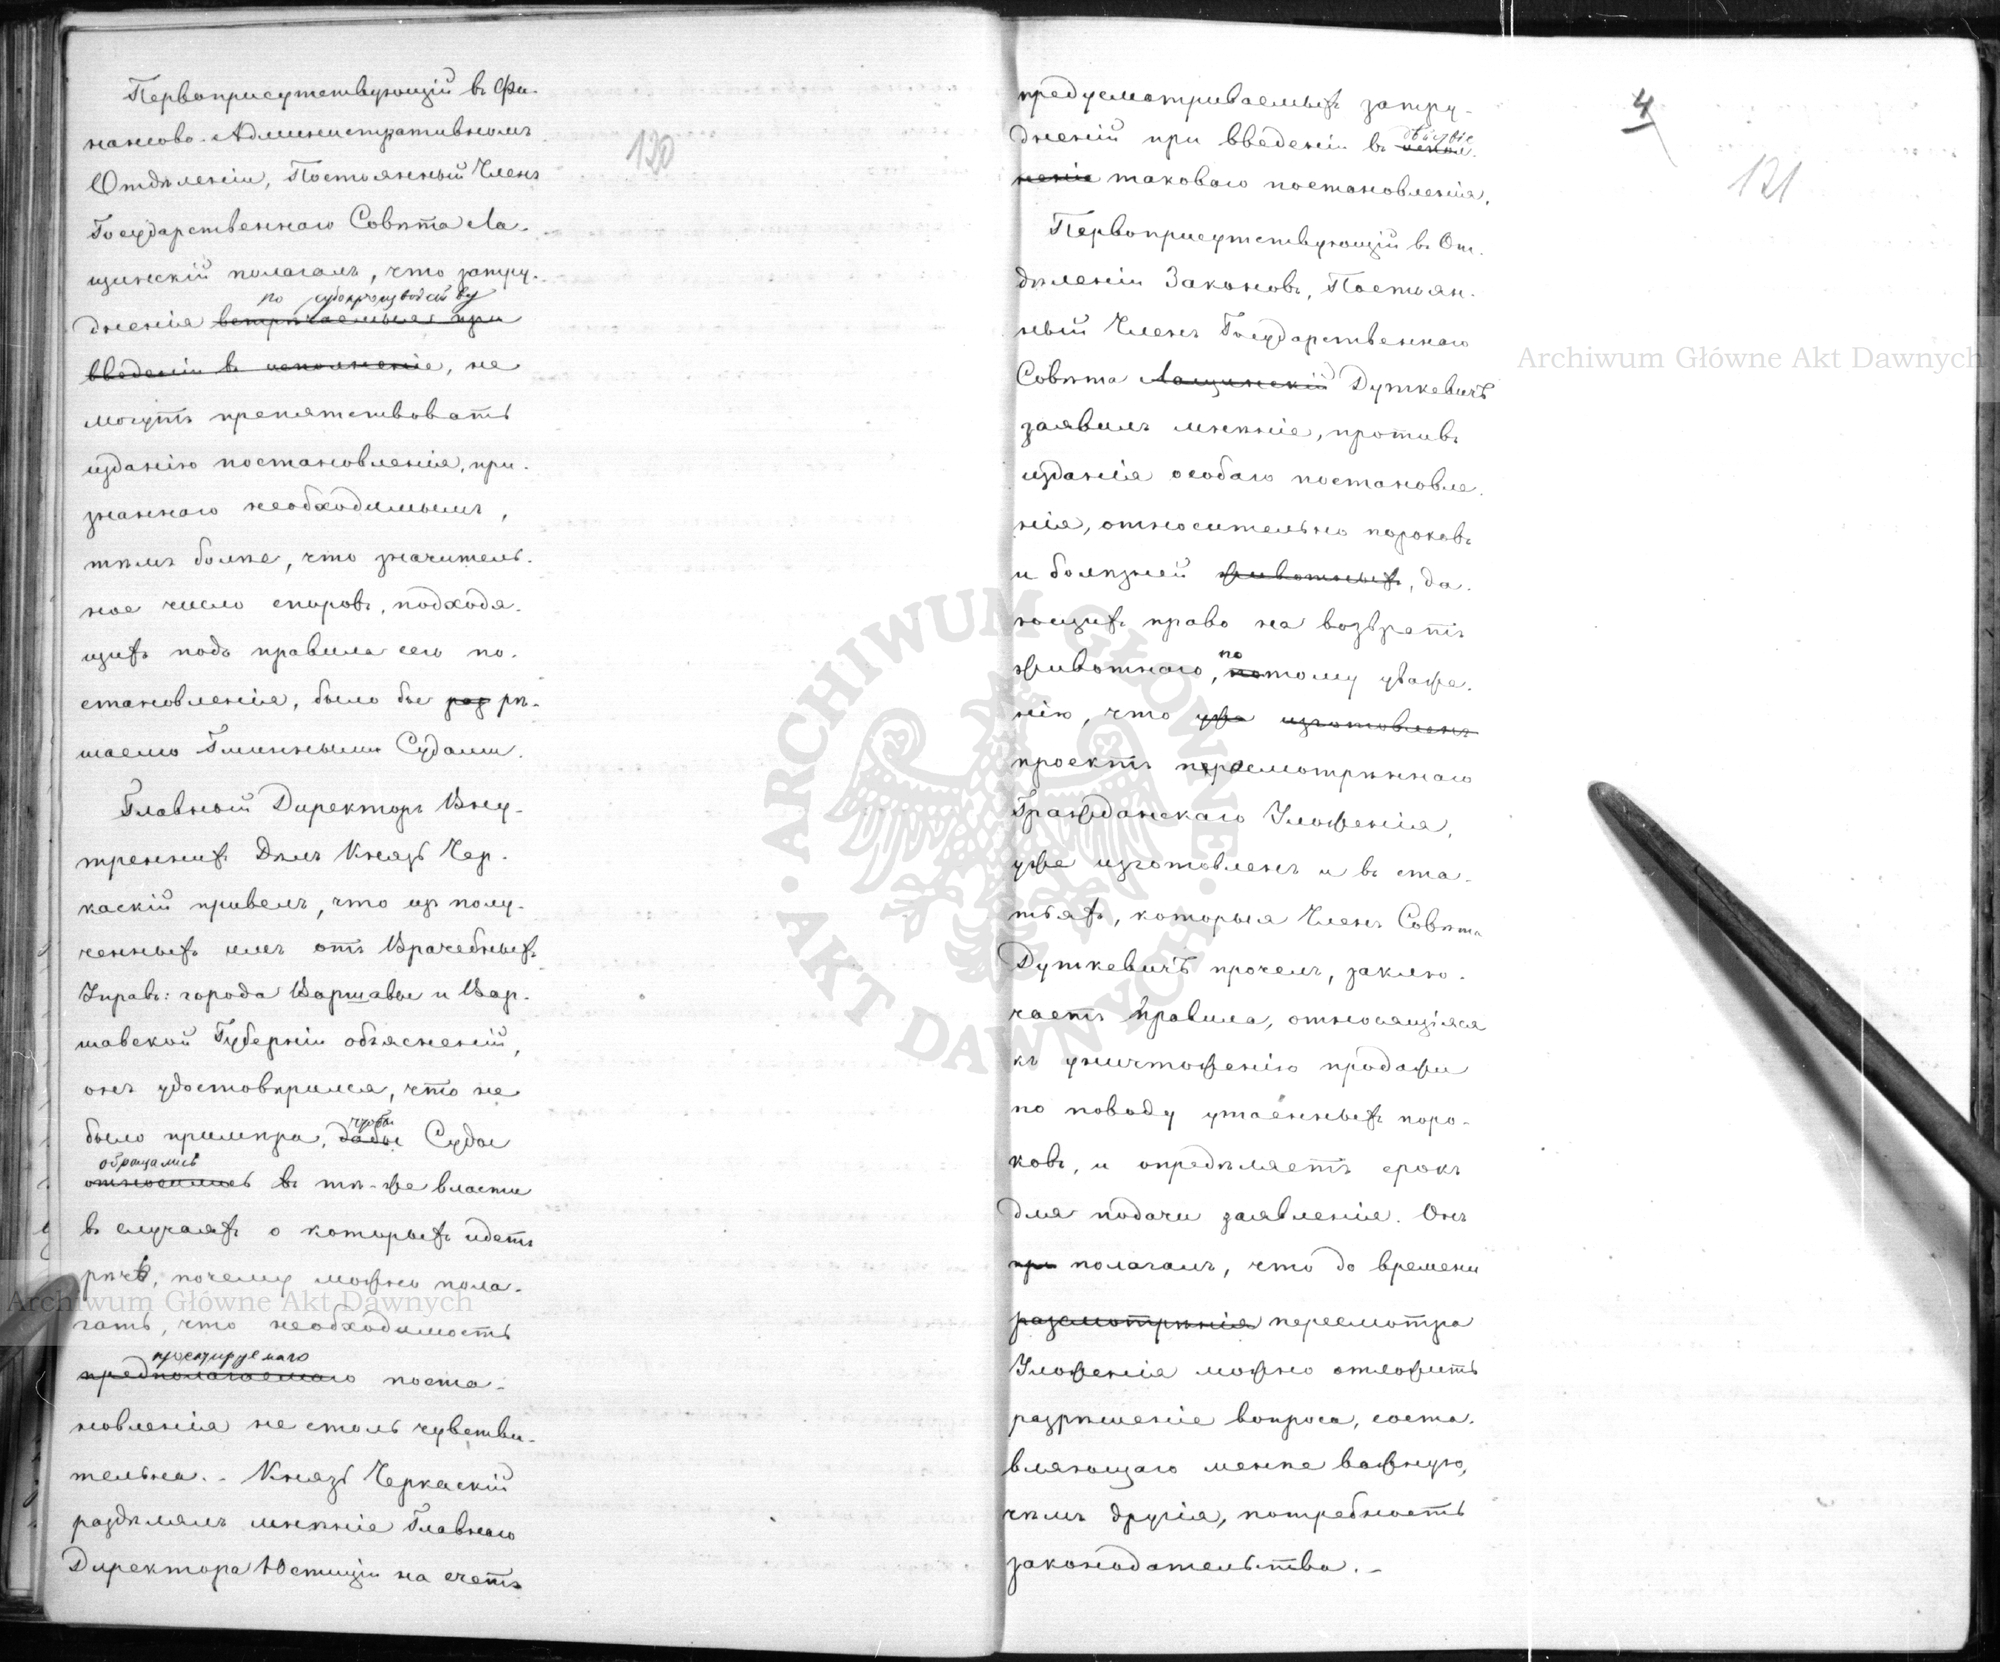 Первоприсутствующій въ Фи-
нансово-Административномъ
Отдѣленіи, Постоянный Членъ
Государственнаго Совѣта Ла-
щинскій полагалъ, что затру-
по судопроизводству
дненія встрѣчаемыя при
введеніи въ исполненіе, не
могутъ препятствовать
изданію постановленія, при-
знаннаго необходимымъ,
тѣмъ болѣе, что значитель-
ное число споровъ, подходя-
щихъ подъ правила сего по-
становленія, было бы раз рѣ-
шаемо Гминными Судами.
Главный Директоръ Вну-
треннихъ Дѣлъ Князь Чер-
каскій привелъ, что изъ полу-
ченныхъ имъ отъ Врачебныхъ
Управъ: города Варшавы и Вар-
шавской Губерніи объясненій,
онъ удостовѣрился, что не
чтобы
было примѣра, дабы Суды
обращались
относились въ тѣ-же власти
въ случаяхъ о которыхъ идетъ
рѣчь, почему можно пола-
гать, что необходимость
проектируемаго
предполагаемаго поста-
новленія не столь чувстви-
тельна. - Князь Черкаскій
раздѣлялъ мнѣніе Главнаго
Директора Юстиціи на счетъ
120
предусматриваемыхъ затру-
дѣйствіе
дненій при введеніи въ испол-
неніе таковаго постановленія.
Первоприсутствующій въ От-
дѣленіи Законовъ, Постоян-
ный Членъ Государственнаго
Совѣта Лащинскій Дуткевичъ
заявилъ мнѣніе, противъ
изданія особаго постановле-
нія, относительно пороковъ
и болѣзней животныхъ, да-
ющихъ право на возвратъ
по
животнаго, потому уваже-
нію, что уже изготовленъ
проектъ пересмотрѣннаго
Гражданскаго Уложенія,
уже изготовленъ и въ ста-
тьяхъ, которыя Членъ Совѣта
Дуткевичъ прочелъ, заклю-
чаетъ правила, относящіяся
къ уничтоженію продажи
по поводу утаённыхъ поро-
ковъ, и опредѣляетъ срокъ
для подачи заявленія. Онъ
при полагалъ, что до времени
разсмотрѣнія пересмотра
Уложенія можно отложить
разрѣшеніе вопроса, соста-
вляющаго менѣе важную,
чѣмъ другія, потребность
законодательства. -
4
121
Archiwum Główne Akt Dawnych
Archiwum Główne Akt Dawnych
ARCHIWUM GŁÓWNE
· AKT DAWNYCH ·